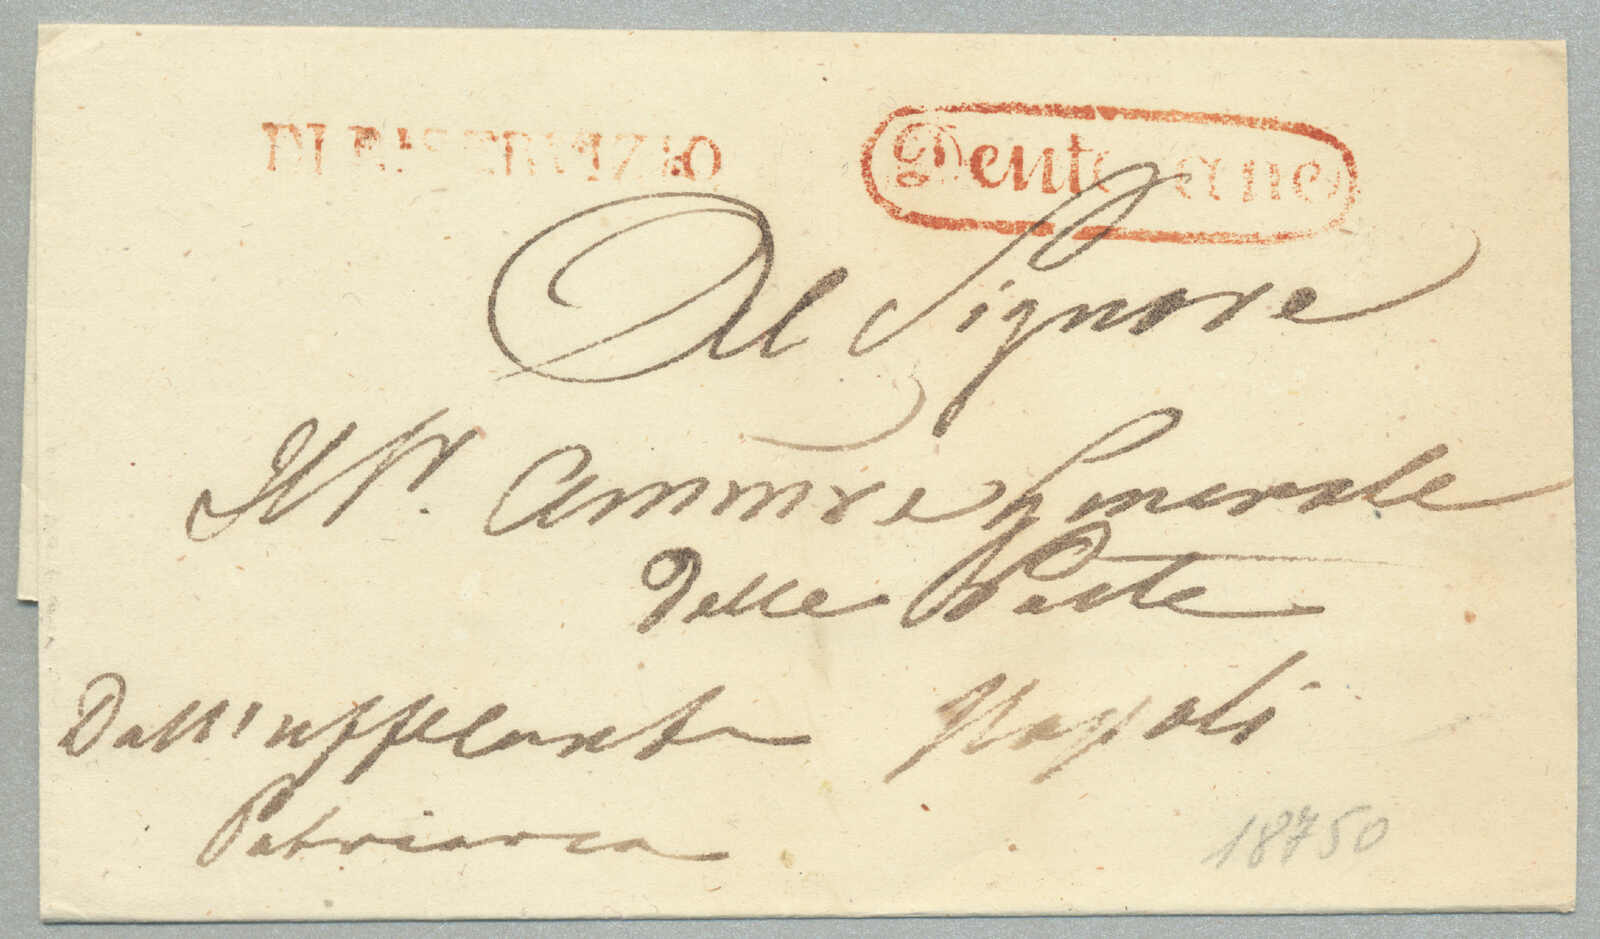 DI R.l SERVIZIO
Pentolane
Al Signore
Il Sr. Ammre Generale
Delle Poste
Dall'uffle
Napoli
Patriarca
18750